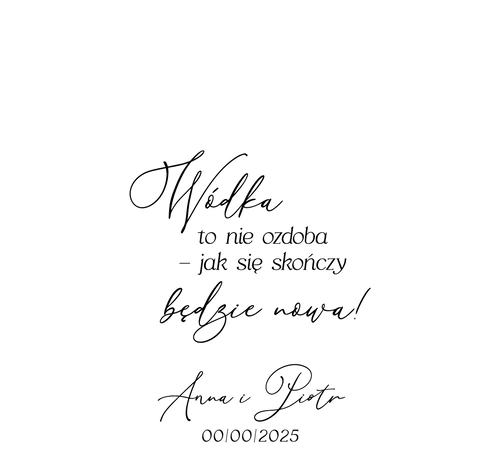 Wódka
to nie ozdoba
– jak się skończy
będzie nowa!
Anna i Piotr
00|00|2025